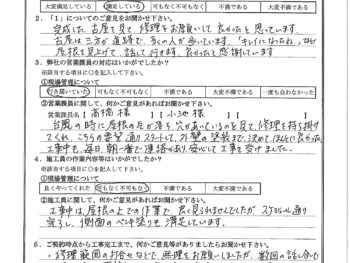 大変満足している 満足している 可もなく不可もなく 不満である 大変不満である
2.「1」についてのご意見をお聞かせ下さい。
完成した、古屋を見て、修理をお願いして良かったと思っています。
古屋は三方が道路で、多くの人が歩いています。「キレイになったネ。」など
屋根を見上げて、話して行きます。良かったと感謝しています
3.弊社の営業課員の対応はいかがでしたか？
※該当する項目に〇を記入して下さい。
①現場管理について
行き届いていた 可もなく不可もなく 不満である 大変不満である 一度も会わなかった
②営業課員に関して、何かご意見があればお聞かせ下さい。
営業課員名【 高橋様 】 営業課員名【 小池様 】
台風の時に屋根の瓦が落ち、穴があいているのを見て、修理を持ち掛け
てくれ、こちらの要望通りスタートして、外壁の塗装まで、決めてほんとに良かった
工事中も、毎日、朝一番で連絡があり安心して工事を受けました。
4.施工員の作業内容等はいかがでしたか？
※該当する項目に〇を記入して下さい。
①現場管理について
良くやってくれた 可もなく不可もなく 不満である 大変不満である
②施工員に関して、何かご意見があればお聞かせ下さい。
工事中は、屋根の上での作業で良く見られませんでしたが、スケジュール通り
完了し、側面のペンキ塗りも満足しています。
5.ご契約時点から工事完工まで、何かご意見等がありましたらお聞かせ下さい。
・修理範囲の打合せなどで無理をお願いしましたが、数回の話し合で